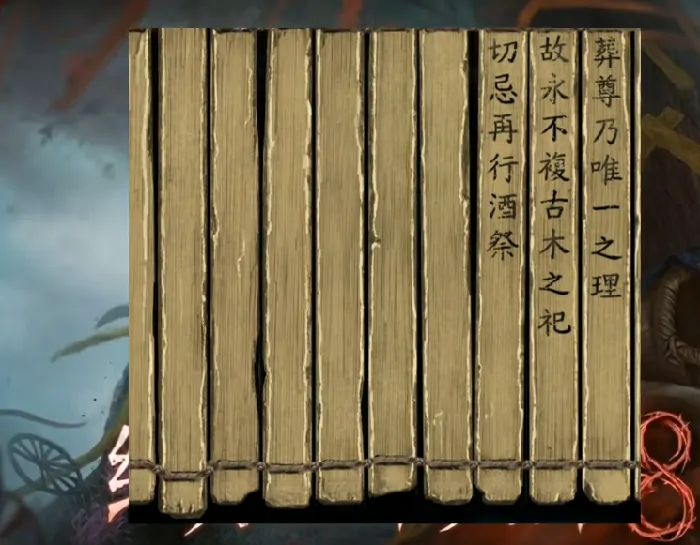 葬尊乃唯一之理
故永不複古木之祀
切忌再行酒祭
8